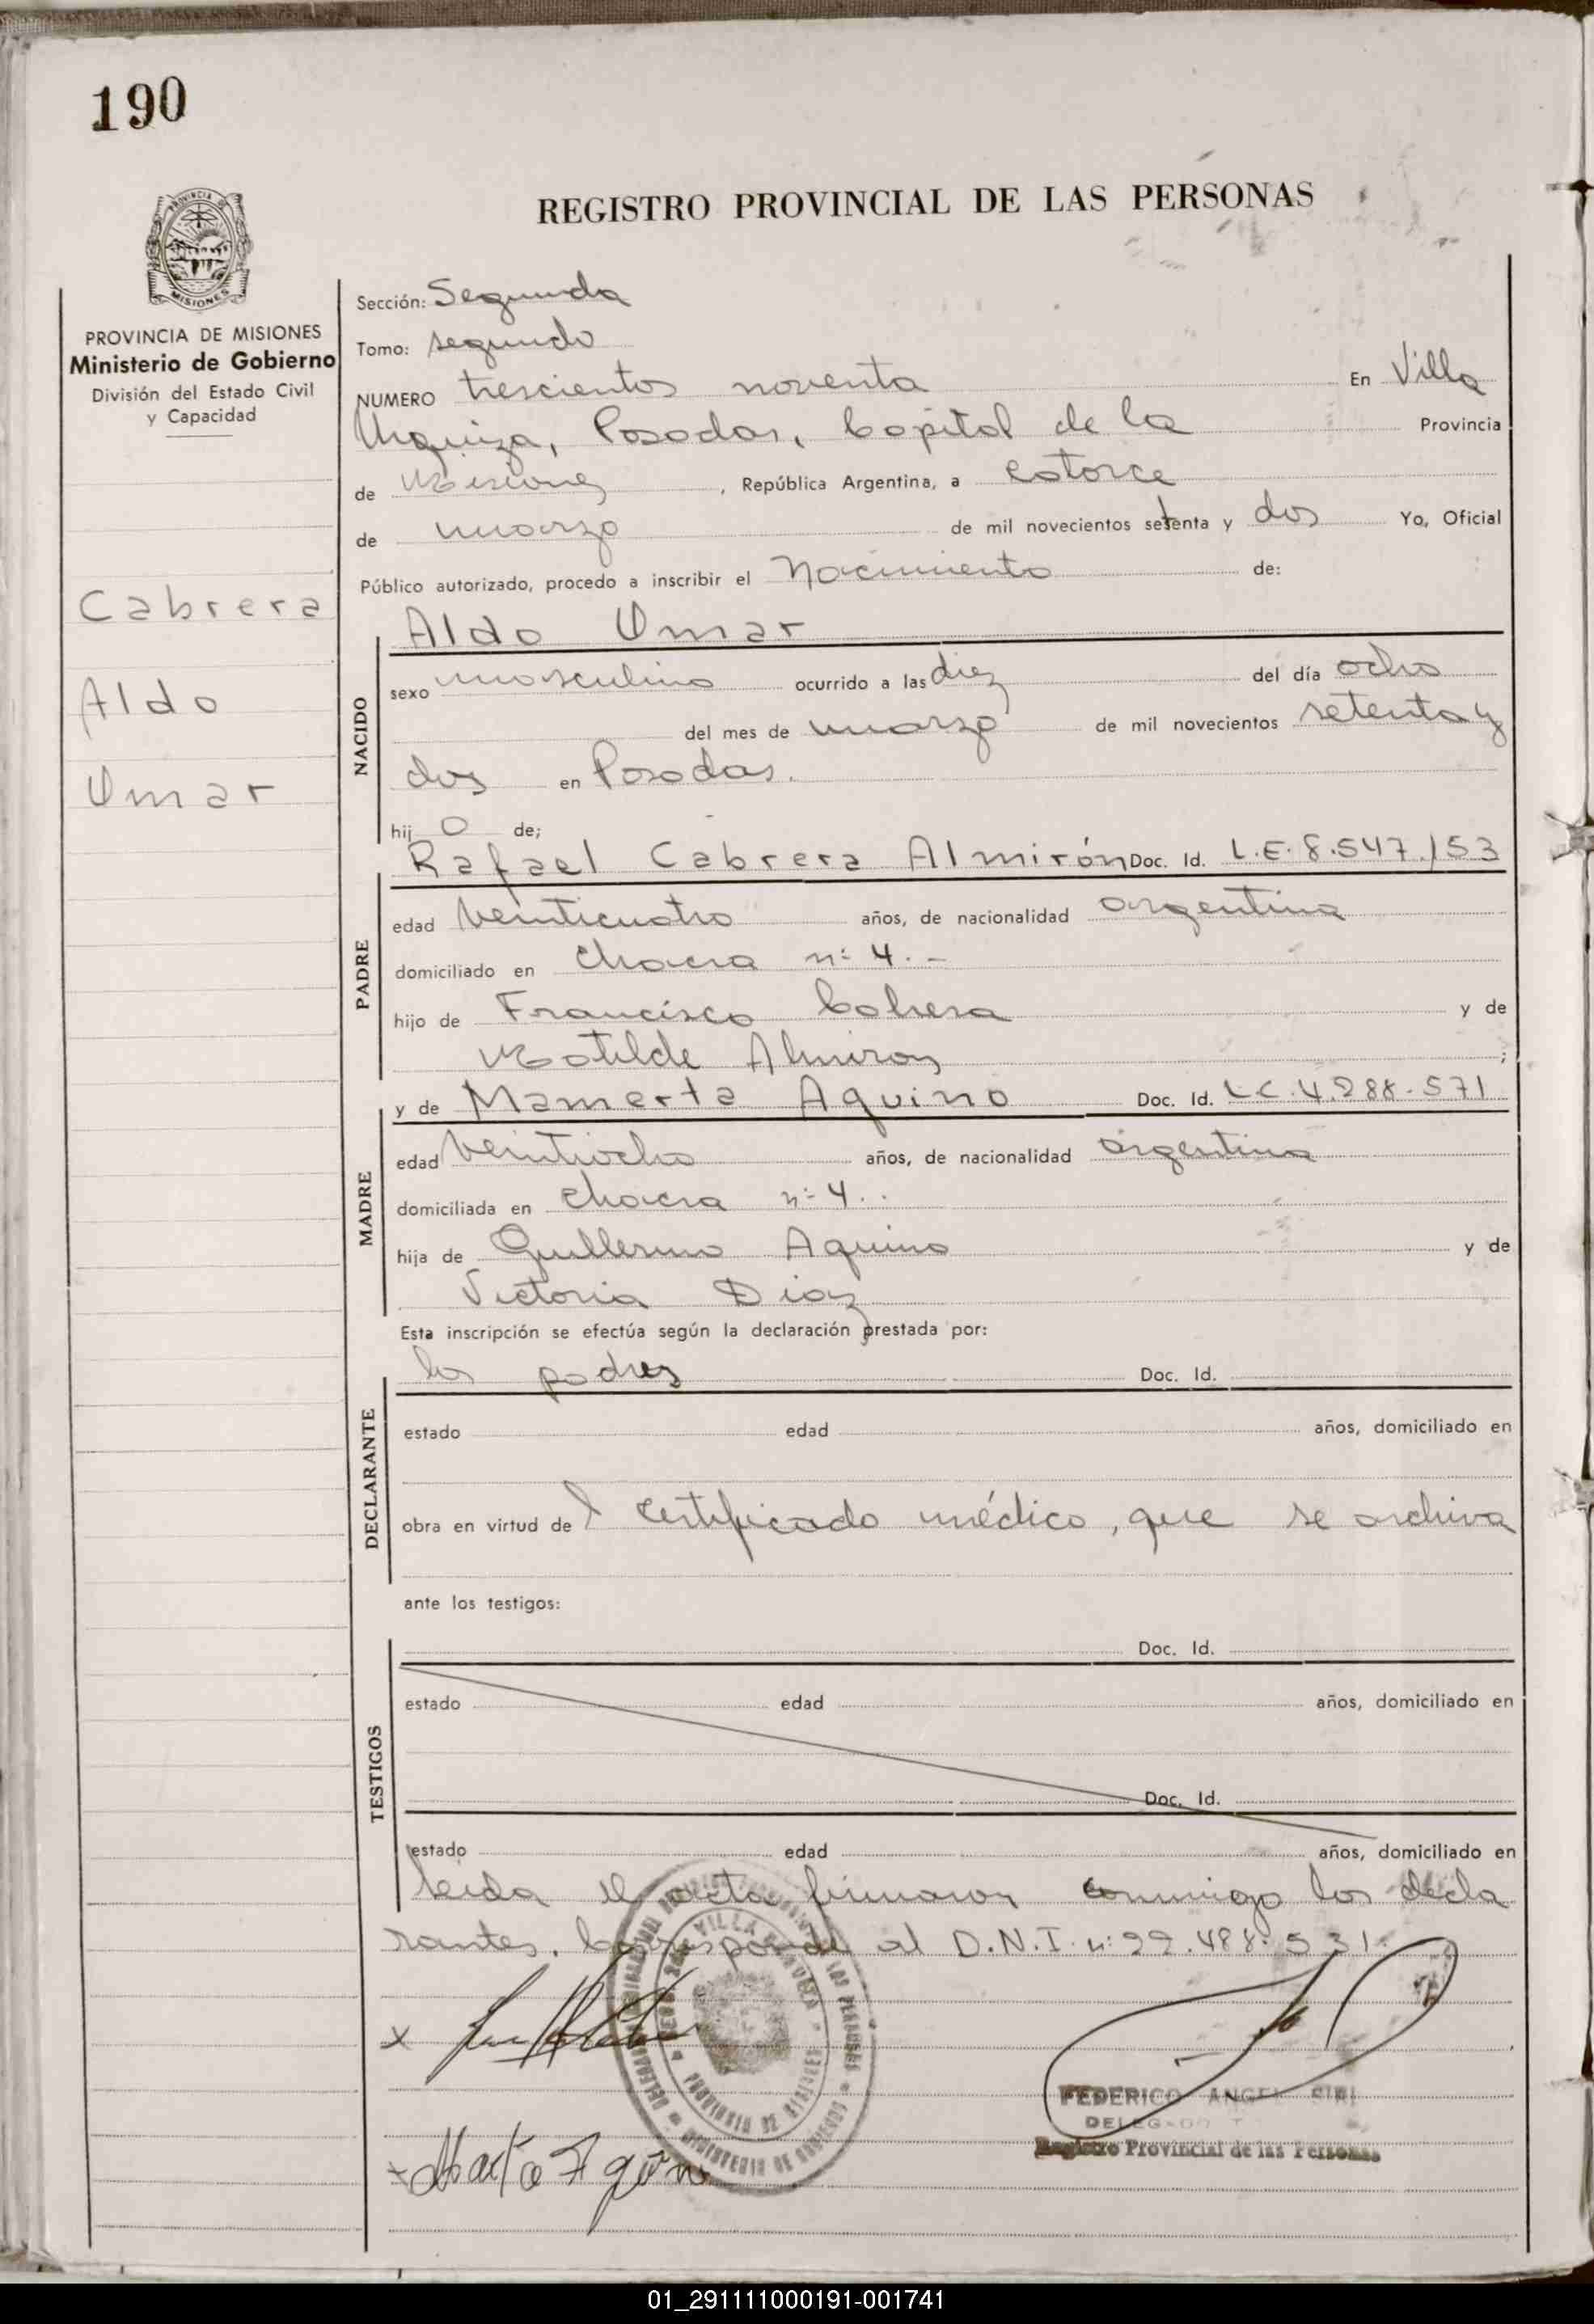 190
REGISTRO PROVINCIAL DE LAS PERSONAS
MISIONES
PROVINCIA DE MISIONES
Ministerio de Gobierno
División del Estado Civil
y Capacidad
Cabrera
Aldo
Omar
Sección: Segunda
Tomo: segundo
NUMERO trescientos noventa En Villa
Urquiza, Posadas, Capital de la Provincia
de Misiones, República Argentina, a catorce
de marzo de mil novecientos setenta y dos Yo, Oficial
Público autorizado, procedo a inscribir el Nacimiento de:
Aldo Omar
NACIDO
sexo masculino ocurrido a las diez del día ocho
del mes de marzo de mil novecientos setenta y
dos en Posadas.
hij o de;
Rafael Cabrera Almirón Doc. Id. L.E. 8.547.153
PADRE
edad veinticuatro años, de nacionalidad argentina
domiciliado en chacra n: 4.-
hijo de Francisco Cabrera y de
Matilde Almiron ;
y de Mamerta Aquino Doc. Id. L.C. 4.288.571
MADRE
edad veintiocho años, de nacionalidad argentina
domiciliada en chacra n: 4..
hija de Guillermo Aquino y de
Victoria Diaz
Esta inscripción se efectúa según la declaración prestada por:
los padres Doc. Id.
DECLARANTE
estado edad años, domiciliado en
obra en virtud del certificado médico, que se archiva
ante los testigos:
Doc. Id.
TESTIGOS
estado edad años, domiciliado en
Doc. Id.
estado edad años, domiciliado en
Leida el acta firmaron conmigo los decla
rantes. Corresponde al D.N.I. n: 22.488.531.
x
x
VILLA
PROVINCIA DE MISIONES
MINISTERIO DE GOBIERNO
FEDERICO ANGEL SIRI
Registro Provincial de las Personas
01_291111000191-001741